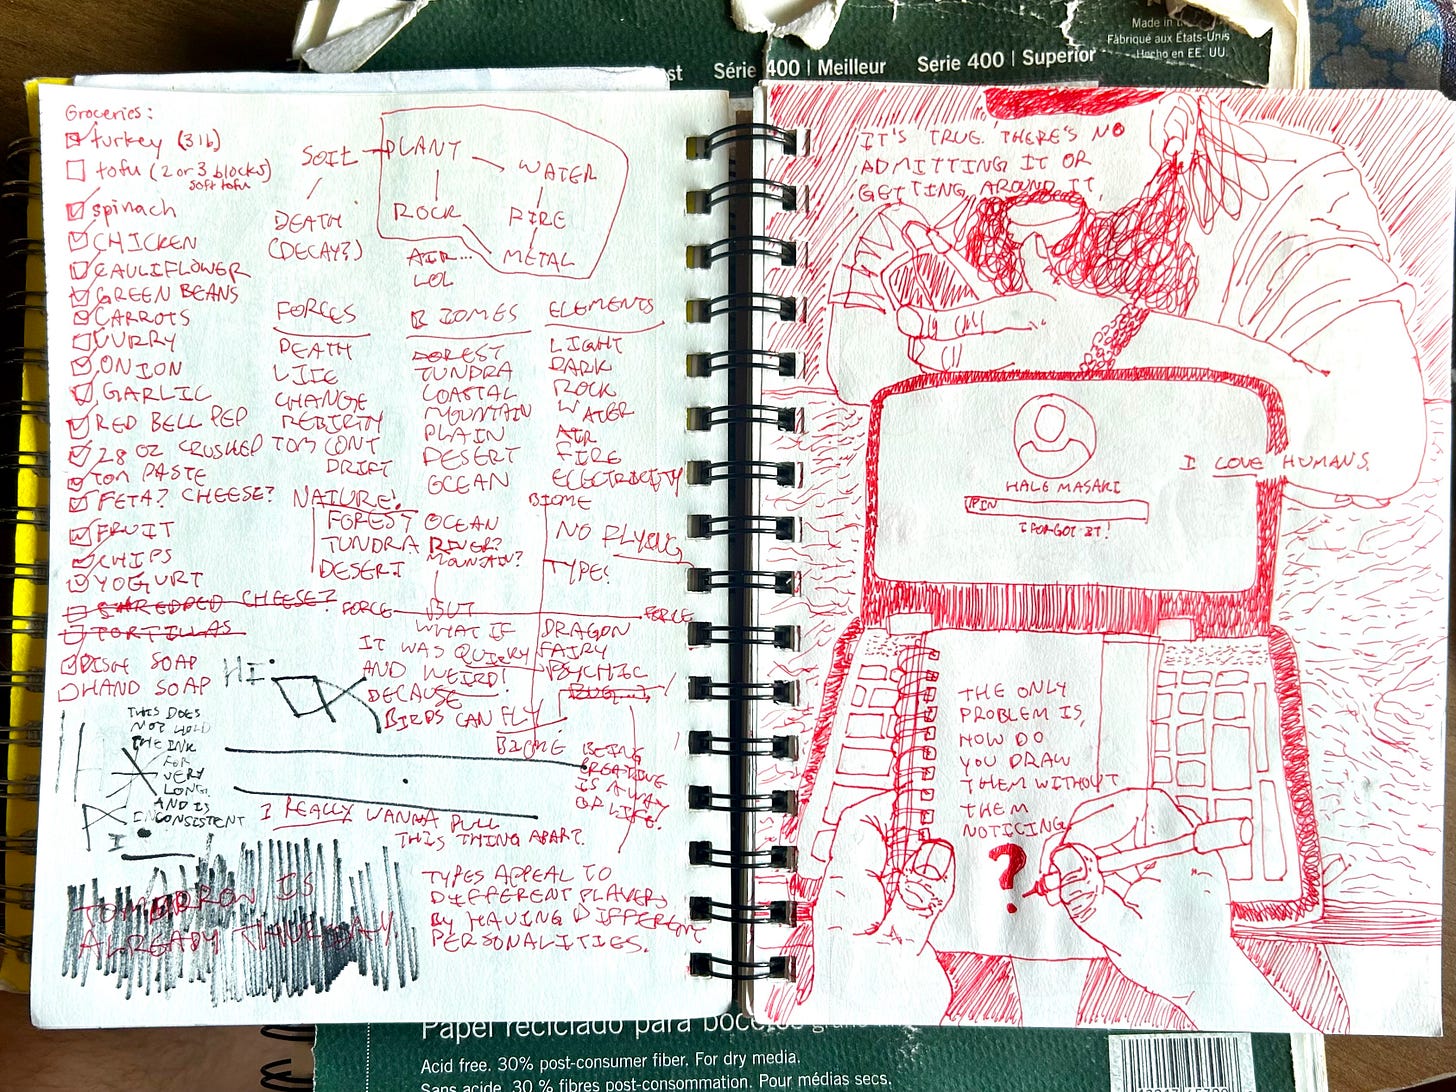 Made in
Fabriqué aux États-Unis
Hecho en EE. UU.
Série 400 | Meilleur
Série 400 | Superior
Groceries:
turkey (3 lb)
tofu (2 or 3 blocks)
soft tofu
spinach
CHICKEN
CAULIFLOWER
GREEN BEANS
CARROTS
CURRY
ONION
GARLIC
RED BELL PEP
28 OZ CRUSHED TOM CONT
TOM PASTE
FETA? CHEESE?
FRUIT
CHIPS
YOGURT
SHREDDED CHEESE?
TORTILLAS
DISH SOAP
HAND SOAP
SOIL
PLANT
WATER
ROCK
FIRE
METAL
DEATH
(DECAY?)
AIR...
LOL
FORCES
DEATH
LIFE
CHANGE
REBIRTH
DRIFT
BIOMES
FOREST
TUNDRA
COASTAL
MOUNTAIN
PLAIN
DESERT
OCEAN
ELEMENTS
LIGHT
DARK
ROCK
WATER
AIR
FIRE
ELECTRICITY
NATURE!
FOREST OCEAN
TUNDRA RIVER?
DESERT MOUNTAIN?
BIOME
NO FLYING
TYPE!
FORCE
FORCE
BUT
WHAT IF
IT WAS QUIRKY
AND WEIRD!
BECAUSE
BIRDS CAN FLY
DRAGON
FAIRY
PSYCHIC
BUG
BIOME
BEING
CREATIVE
IS A WAY
OF LIFE.
HI.
THIS DOES
NOT HOLD
THE INK
FOR
VERY
LONG.
AND IS
INCONSISTENT
I REALLY WANNA PULL
THIS THING APART.
TOMORROW IS
ALREADY THURSDAY
TYPES APPEAL TO
DIFFERENT PLAYERS
BY HAVING DIFFERENT
PERSONALITIES.
IT'S TRUE. THERE'S NO
ADMITTING IT OR
GETTING AROUND IT,
I LOVE HUMANS.
HALE MASAKI
PIN
I FORGOT IT!
THE ONLY
PROBLEM IS,
HOW DO
YOU DRAW
THEM WITHOUT
THEM
NOTICING
?
Papel reciclado para bocetos
Acid free. 30% post-consumer fiber. For dry media.
Sans acide. 30 % fibres post-consommation. Pour médias secs.